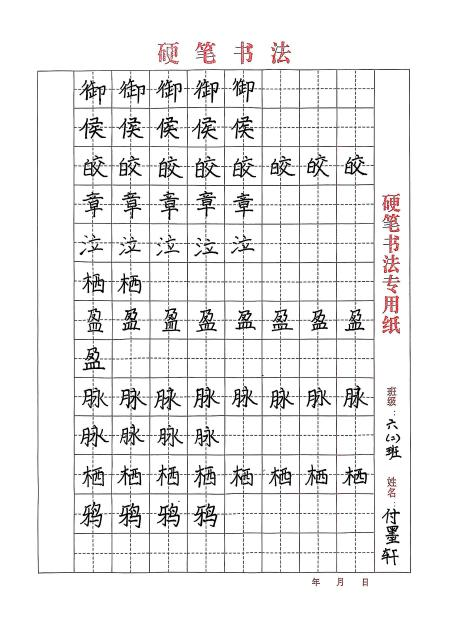 硬笔书法
御御御御御
侯侯侯侯侯
皎皎皎皎皎皎皎皎
章章章章章
泣泣泣泣泣
栖栖
盈盈盈盈盈盈盈盈
盈
脉脉脉脉脉脉脉脉
脉脉脉脉
栖栖栖栖栖栖栖栖
鸦鸦鸦鸦
硬笔书法专用纸
班级:六(2)班
姓名:付墨轩
年 月 日